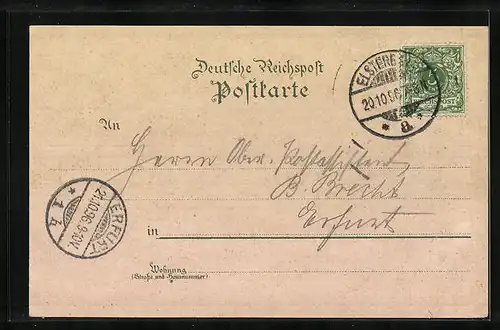 Deutsche Reichspost
Postkarte
ELSTERBERG
20.10.96
* a *
An
Herrn Ober-Postassistent
B. Brecht
Erfurt
in
ERFURT
21.10.96.9-10V.
* 1 h
Wohnung
(Straße und Hausnummer)